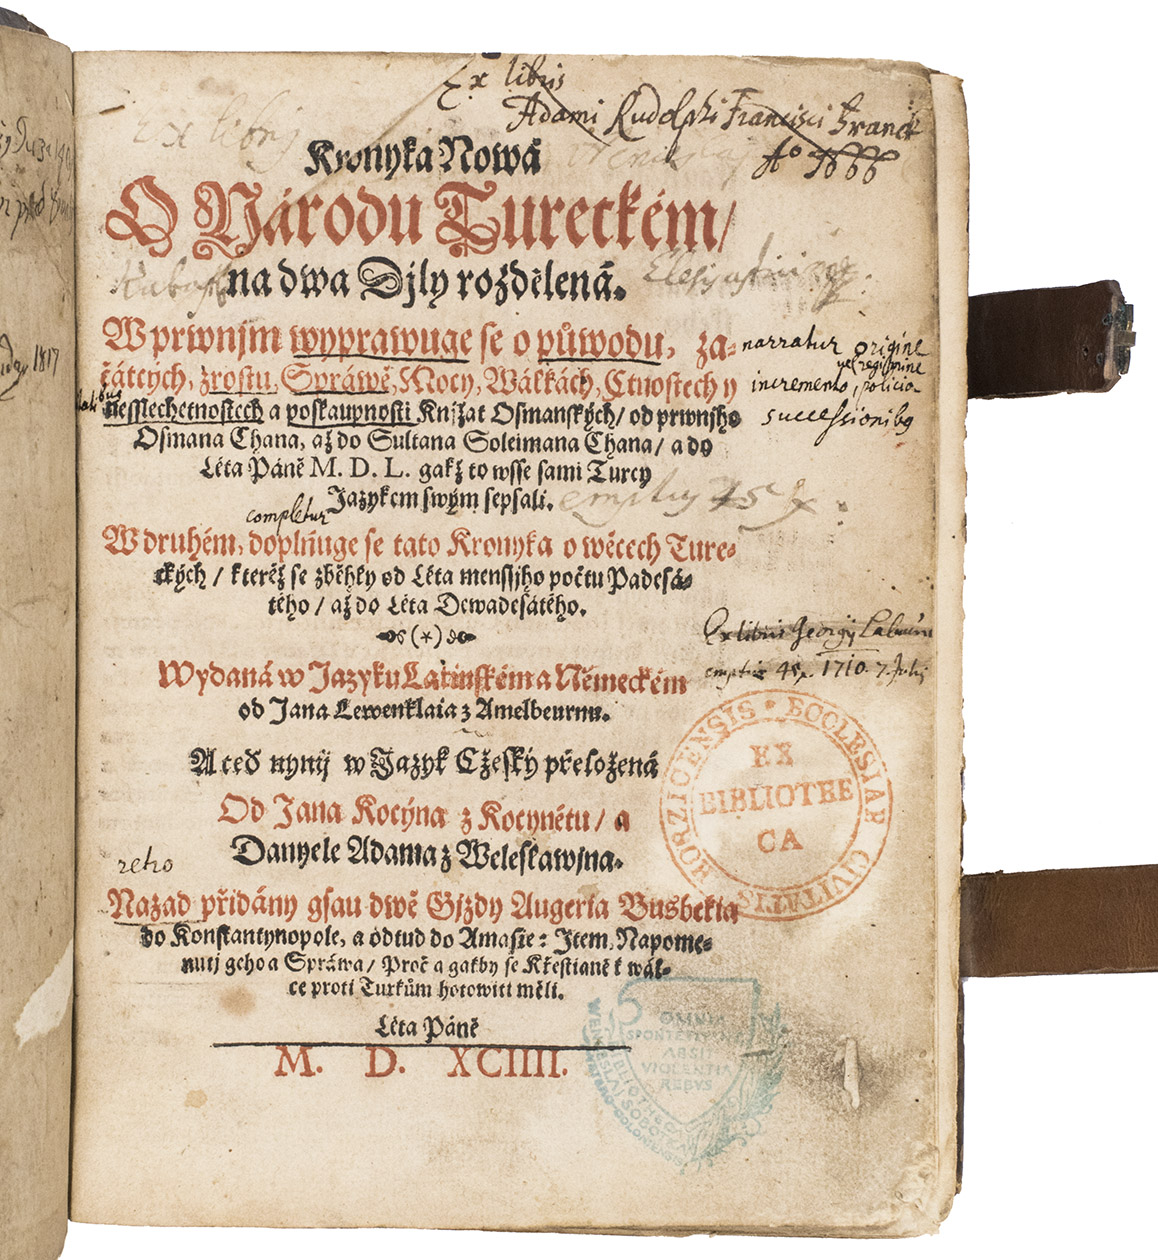 Ex libris
Adami Rudolphi Francisci
Aº 1666
Ex libris
Kronyka Nowá
O Národu Tureckém/
na dwa Djly rozdělená.
W prwnjm wyprawuge se o půwodu, za-
čátcých, zrostu, Spráwě, Mocy, Wálkách, Ctnostech y
nesslechetnostech a poskaupnosti Knjžat Osmanských/ od prwnjho
Osmana Chana, až do Sultana Soleimana Chana/ a do
Léta Páně M. D. L. gakž to wsse sami Turcy
Jazykem swým sepsali.
narratur origine
incremento, policia
successionibg
completur
W druhém, doplňuge se tato Kronyka o wěcech Ture-
ckých / kteréž se zběhly od Léta mensljho počtu Padesá-
tého / až do Léta Dewadesátého.
(*)
Ex libris Georgij
1710. 7. Julij
Wydaná w Jazyku Latinském a Německém
od Jana Lewenklaia z Amelbeurnu.
A teď nynij w Jazyk Cžeský přeložená
Od Jana Kocýna z Kocynétu/ a
Danyele Adama z Weleslawjna.
retro
Nazad přidány gsau dwě Gjzdy Augeria Busbekia
do Konstantynopole, a odtud do Amasie: Jtem, Napome-
nutj geho a Spráwa/ Proč a gakby se Křestiané k wál-
ce proti Turkům hotowiti měli.
Léta Páně
M. D. XCIIII.
EX
BIBLIOTHE
CA
ECCLESIAE CIVITATIS HORZICENSIS
OMNIA
SPONTE
ABSIT
VIOLENTIA
REBVS
1817